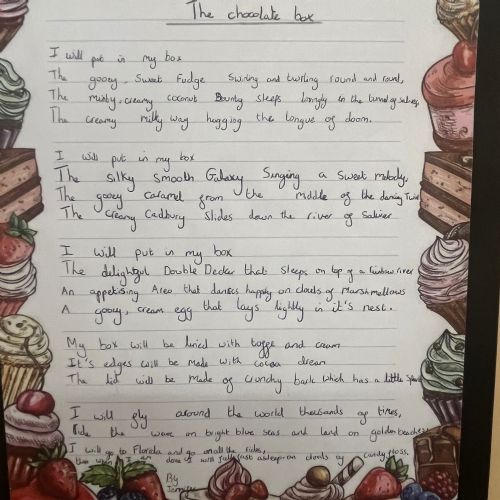 The chocolate box
I will put in my box
The gooey, Sweet Fudge Swirling and twirling round and round,
The minty, creamy coconut Bounty sleeps lovingly in the tunnel of saliva,
The creamy milky way hugging the tongue of doom.
I will put in my box
The Silky Smooth Galaxy Singing a Sweet melody,
The gooey Caramel from the middle of the dancing Twirl
The Creamy Cadbury Slides down the river of Saliva
I will put in my box
The delightful Double Decker that sleeps on top of a rainbow river
An appetising Aero that dances happily on clouds of Marshmellows
A gooey, cream egg that lays lightly in it's nest.
My box will be lined with toffee and cream
It's edges will be made with cocoa dream
The lid will be made of crunchy bark which has a little
I will fly around the world thousands of times,
Ride the wave on bright blue seas and land on golden beaches
I will go to Florida and go on all the rides,
then when I done I will fall fast asleep on clouds of candy floss.
By